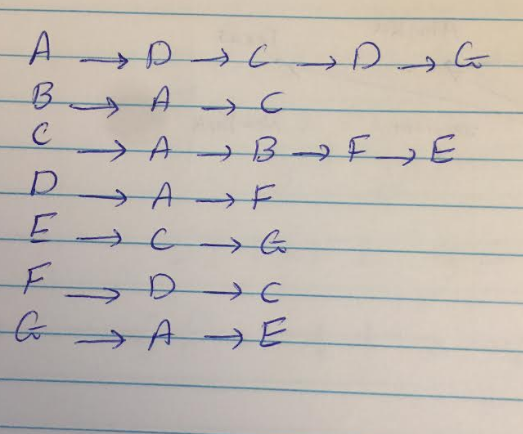 A → D → C → D → G
B → A → C
C → A → B → F → E
D → A → F
E → C → G
F → D → C
G → A → E